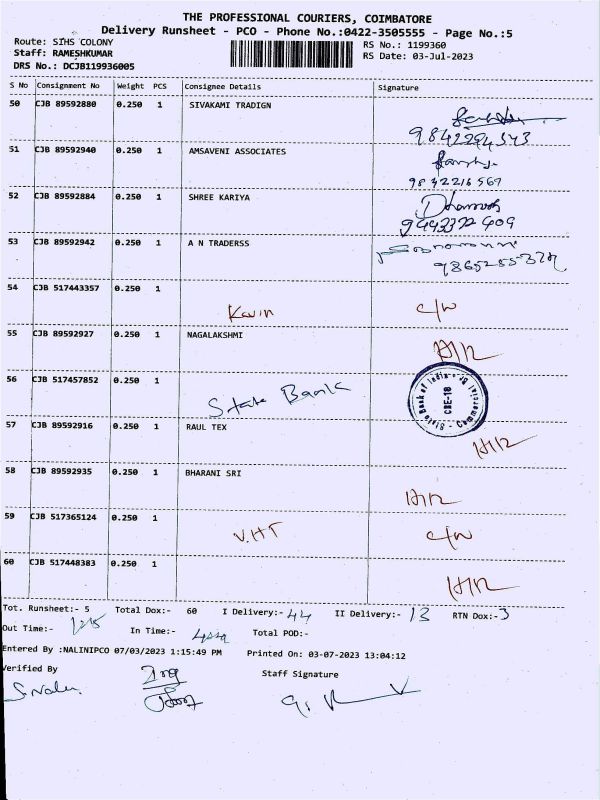 THE PROFESSIONAL COURIERS, COIMBATORE
Delivery Runsheet - PCO - Phone No.:0422-3505555 - Page No.:5
Route: SIHS COLONY
RS No.: 1199360
Staff: RAMESHKUMAR
RS Date: 03-Jul-2023
DRS No.: DCJB119936005
S No Consignment No Weight PCS Consignee Details Signature
50 CJB 89592880 0.250 1 SIVAKAMI TRADIGN
9842294343
51 CJB 89592940 0.250 1 AMSAVENI ASSOCIATES
9842216567
52 CJB 89592884 0.250 1 SHREE KARIYA
53 CJB 89592942 0.250 1 A N TRADERSS
54 CJB 517443357 0.250 1
Kavin C/W
55 CJB 89592927 0.250 1 NAGALAKSHMI
56 CJB 517457852 0.250 1
State Bank
57 CJB 89592916 0.250 1 RAUL TEX
58 CJB 89592935 0.250 1 BHARANI SRI
59 CJB 517365124 0.250 1
V.HT C/W
60 CJB 517448383 0.250 1
Tot. Runsheet:- 5 Total Dox:- 60 I Delivery:- 44 II Delivery:- 13 RTN Dox:- 3
Out Time:- In Time:- Total POD:-
Entered By :NALINIPCO 07/03/2023 1:15:49 PM Printed On: 03-07-2023 13:04:12
Verified By
Staff Signature